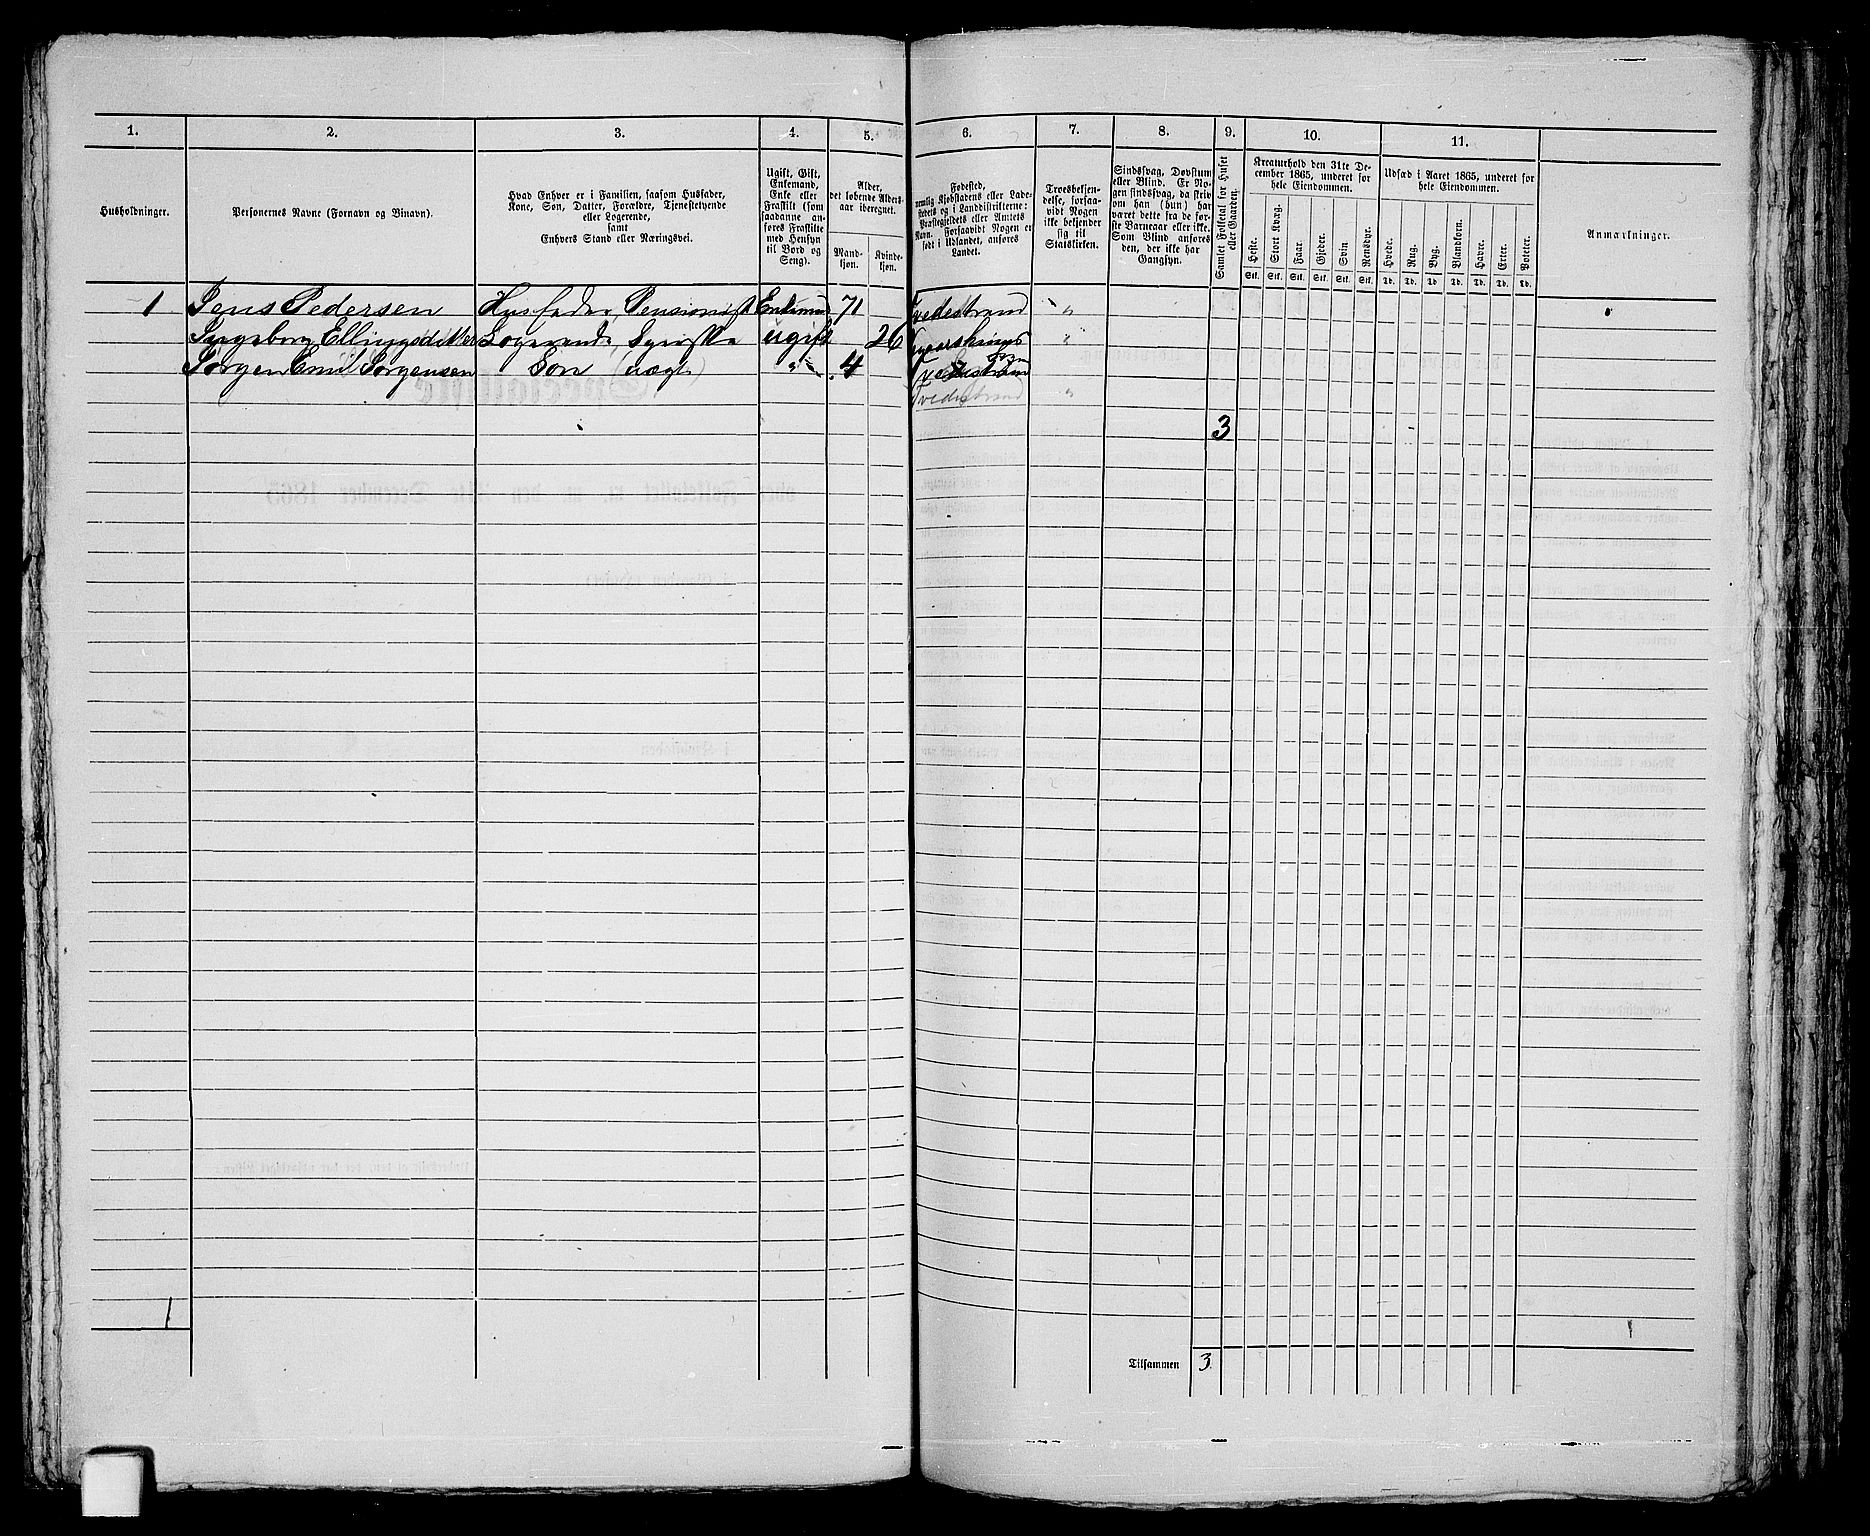 1. 2. 3. 4. 5. 6. 7. 8. 9. 10. 11.
Husholdninger.
Personernes Navne (Fornavn og Binavn).
Hvad Enhver er i Familien, saasom Husfader,
Kone, Søn, Datter, Forældre, Tjenestetyende
eller Logerende,
samt
Enhvers Stand eller Næringsvei.
Ugift, Gift,
Enkemand,
Enke eller
Fraskilt (som
saadanne an-
føres Fraskilte
med Hensyn
til Bord og
Seng).
Alder,
det løbende Alders-
aar iberegnet.
Mand-
kjøn.
Kvinde-
kjøn.
Fødested,
nemlig Kjøbstadens eller Lade-
stedets og i Landdistrikterne:
Præstegjeldets eller Amtets
Navn. Forsaavidt Nogen er
født i Udlandet, anføres
Landet.
Troesbekjen-
delse, forsaa-
vidt Nogen
ikke bekjender
sig til
Statskirken.
Sindssvag, Døvstum
eller Blind. Er No-
gen sindssvag, da skriv
om han (hun) har
været dette fra de før-
ste Barneaar eller ikke.
Som Blind anføres
den, der ikke har
Gangsyn.
Samlet Folketal for Huset
eller Gaarden.
Kreaturhold den 31te De-
cember 1865, underet for
hele Eiendommen.
Heste. Stort Kvæg. Faar. Gjeder. Svin Rensdyr.
Stk. Stk. Stk. Stk. Stk. Stk.
Udsæd i Aaret 1865, underet for
hele Eiendommen.
Hvede. Rug. Byg. Blandkorn. Havre. Erter. Poteter.
Td. Td. Td. Td. Td. Td. Td.
Anmærkninger.
1 Jens Pedersen Husfader, Pensionist Enkemd 71 Tvedestrand "
Ingeborg Ellingsdatter Logerende, Syerske ugift 26 "
Jørgen Emil Jørgensen Søn (uægt) " 4 Tvedestrand
Tvedestrand "
3
1
Tilsammen 3